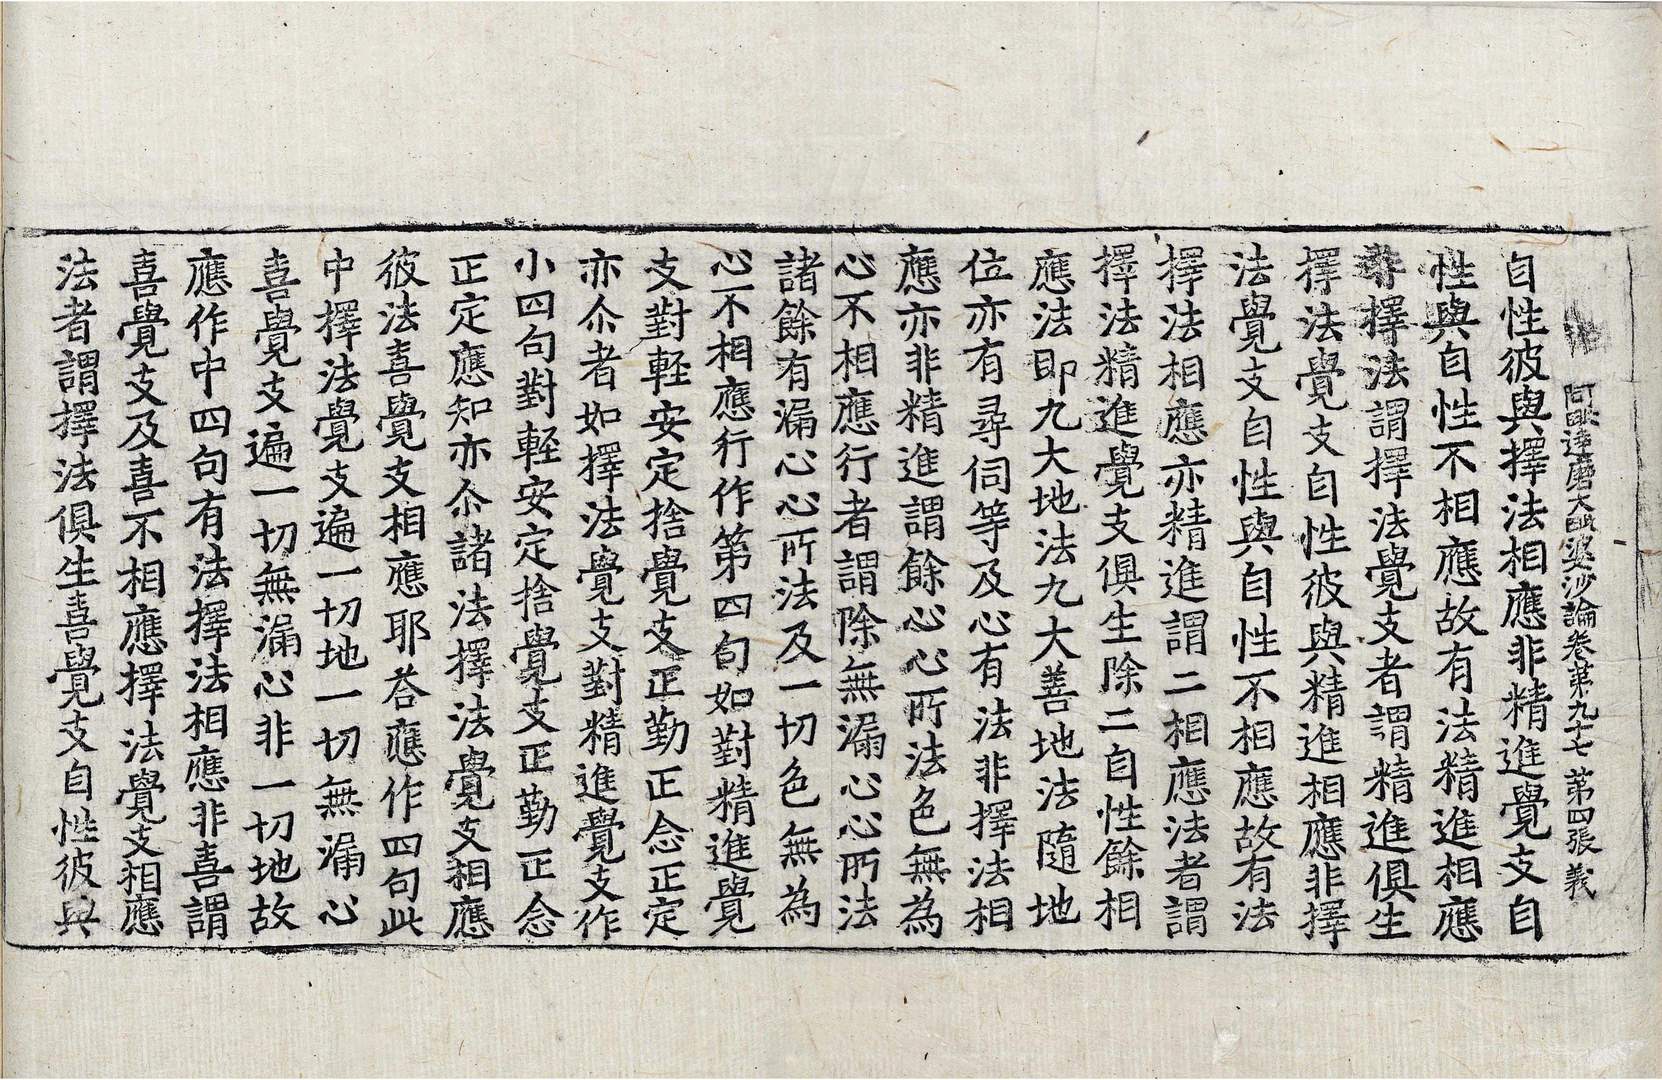 阿毗達磨大毗婆沙論卷第九十七 第四張 義
自性彼與擇法相應非精進覺支自
性與自性不相應故有法精進相應
非擇法謂擇法覺支者謂精進俱生
擇法覺支自性彼與精進相應非擇
法覺支自性與自性不相應故有法
擇法相應亦精進謂二相應法者謂
擇法精進覺支俱生除二自性餘相
應法即九大地法九大善地法隨地
位亦有尋伺等及心有法非擇法相
應亦非精進謂餘心心所法色無為
心不相應行者謂除無漏心心所法
諸餘有漏心心所法及一切色無為
心不相應行作第四句如對精進覺
支對軽安定捨覺支正勤正念正定
亦尒者如擇法覺支對精進覺支作
小四句對軽安定捨覺支正勤正念
正定應知亦尒諸法擇法覺支相應
彼法喜覺支相應耶荅應作四句此
中擇法覺支遍一切地一切無漏心
喜覺支遍一切無漏心非一切地故
應作中四句有法擇法相應非喜謂
喜覺支及喜不相應擇法覺支相應
法者謂擇法俱生喜覺支自性彼與